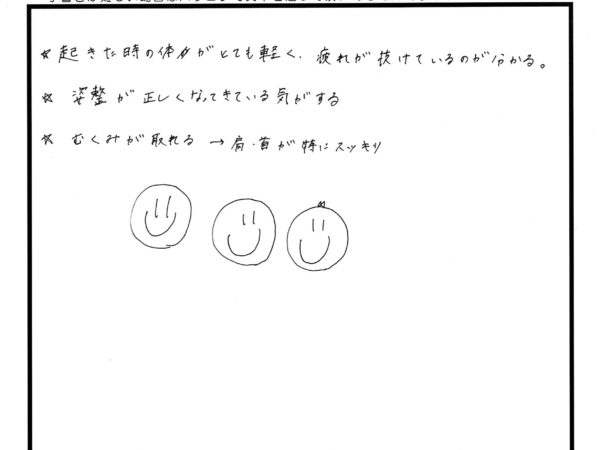 ☆ 起きた時の体がとても軽く、疲れが抜けているのが分かる。
☆ 姿整が正しくなってきている気がする
☆ むくみが取れる → 肩・首が特にスッキリ